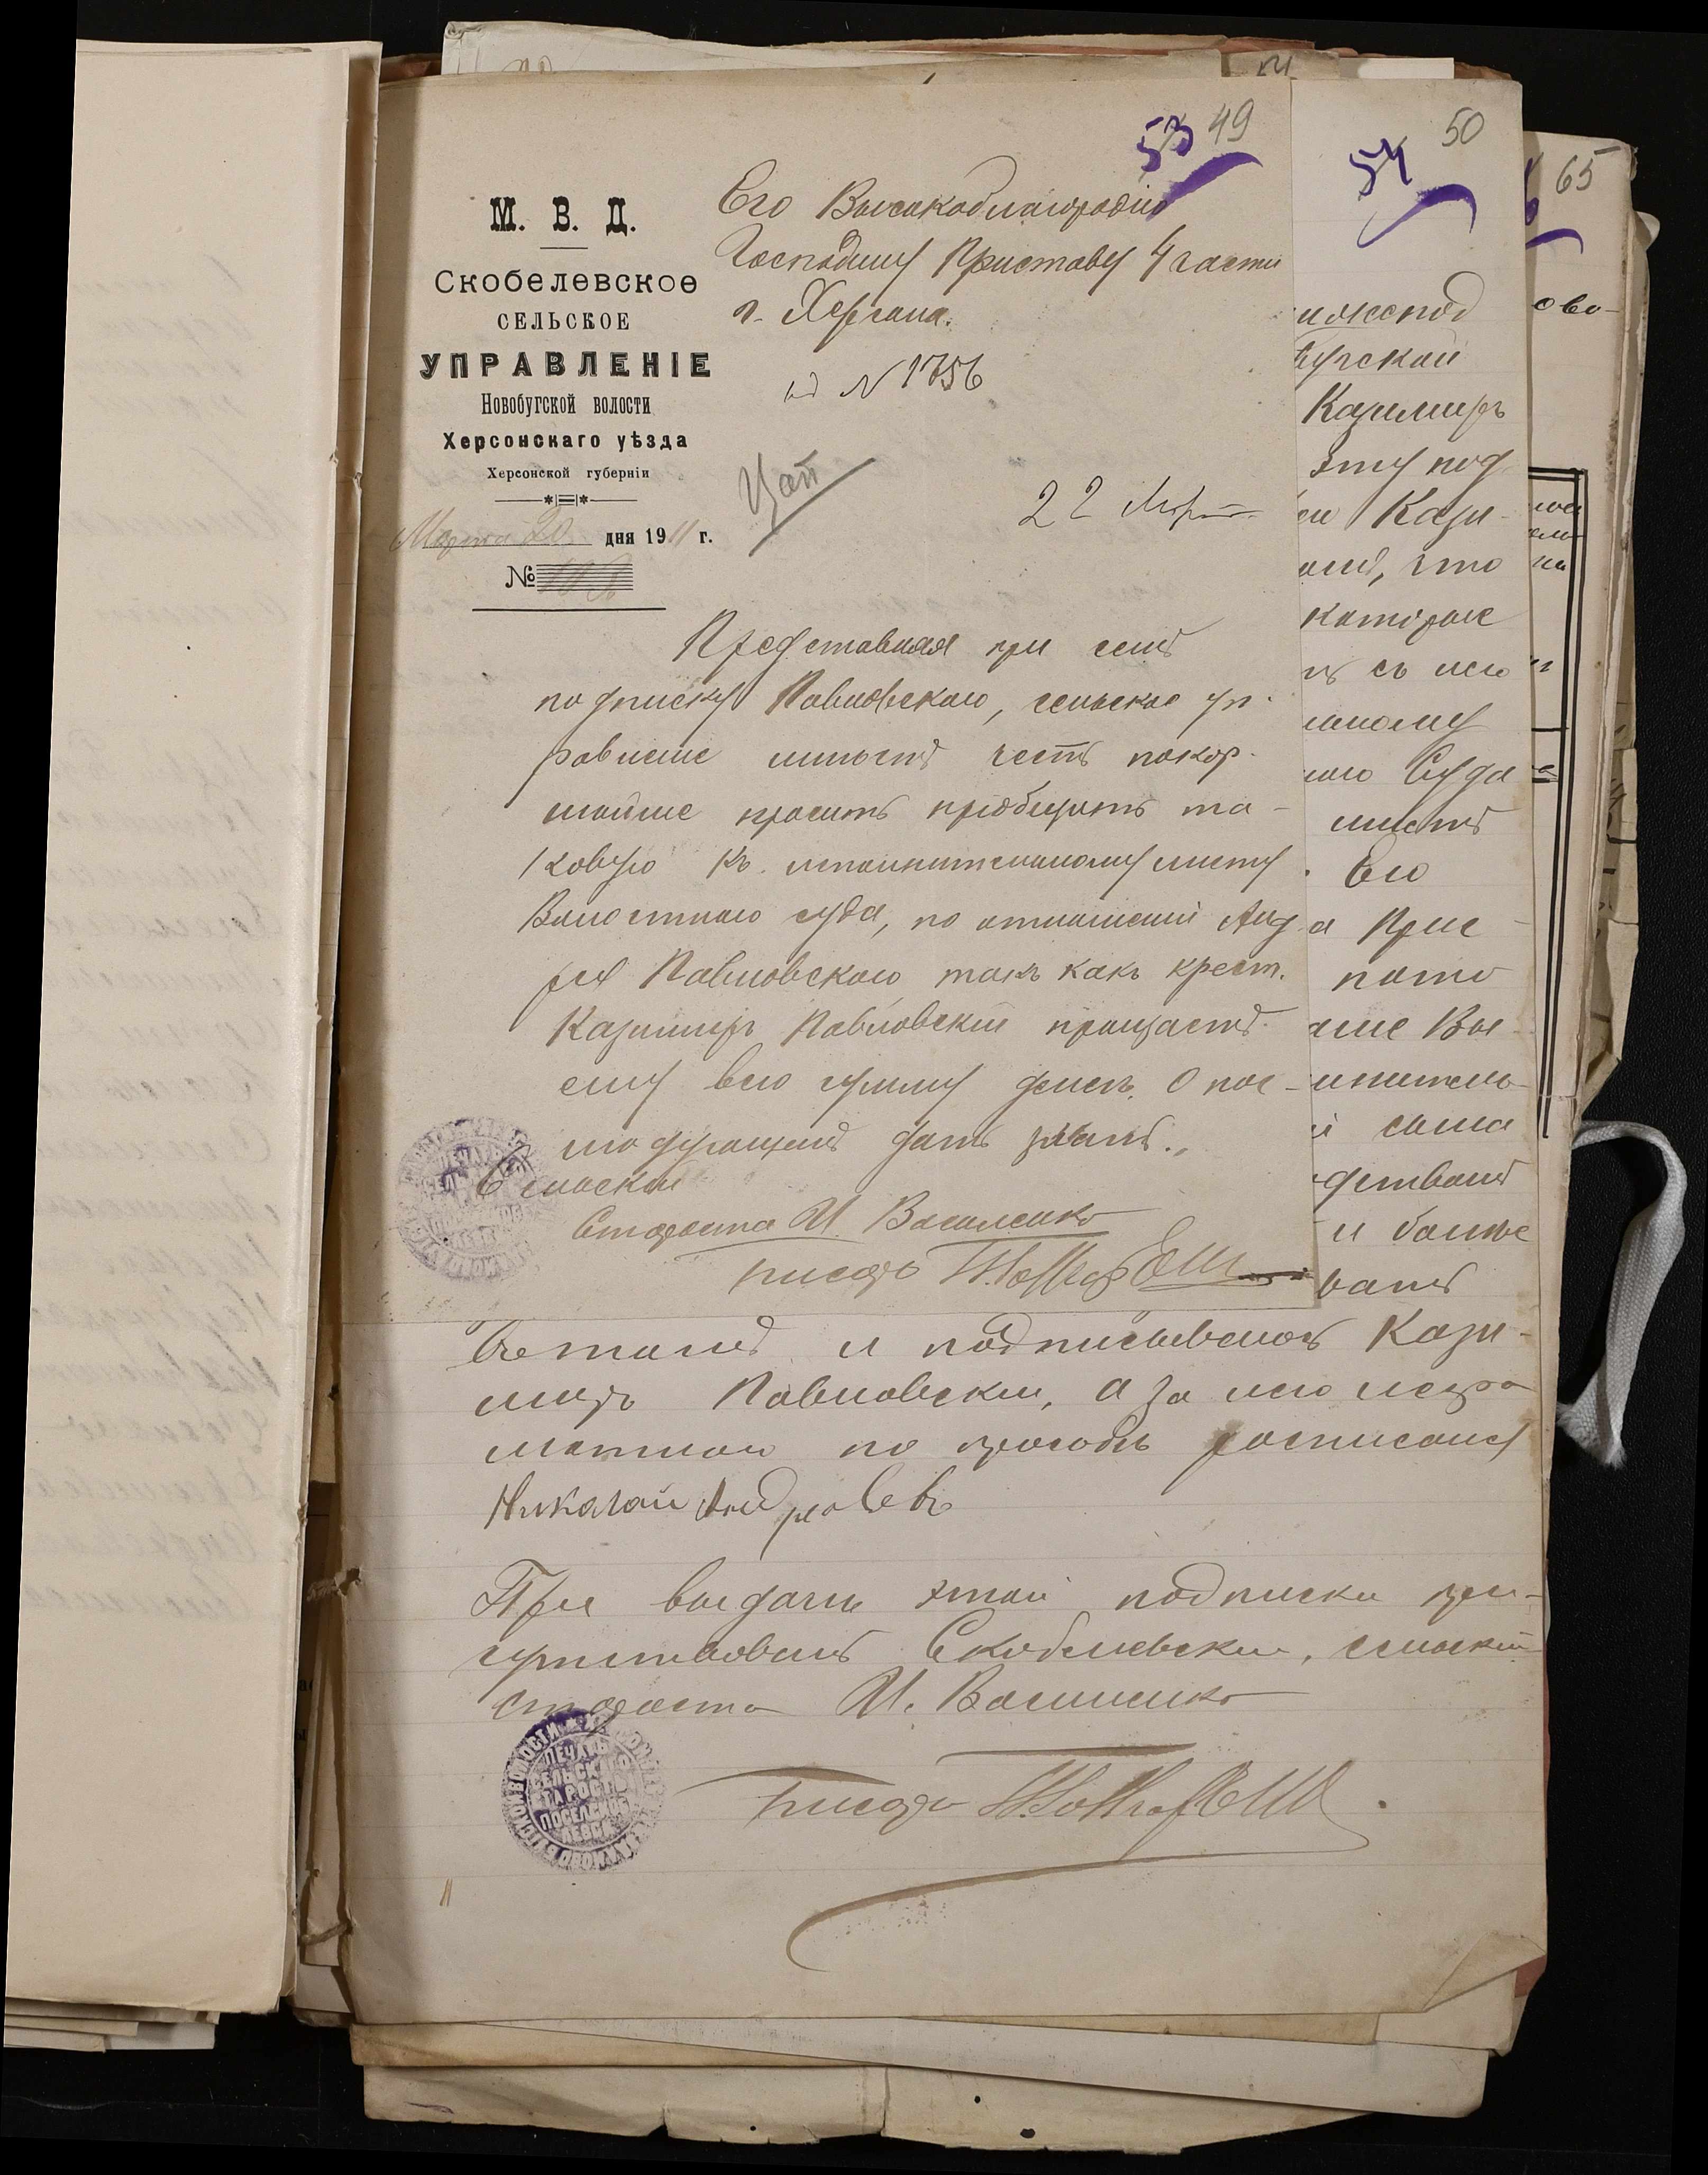 53 49
М. В. Д.
Скобелевское
СЕЛЬСКОЕ
УПРАВЛЕНІЕ
Новобугской волости
Херсонскаго уѣзда
Херсонской губерніи
Марта 20 дня 1911 г.
№
Его Высокоблагородію
Господину Приставу 4 части
г. Херсона.
№ 1756
22 Март
Представляя при семъ
подписку Павловскаго, сельское уп-
равленіе имѣетъ честь покор-
нѣйше просить пріобщить та-
ковую къ исполнительному листу
Волостнаго суда, по отношенію Анд
рея Павловскаго такъ какъ крест.
Казимиръ Павловскій прощаетъ
ему всю сумму денегъ. О пос-
лѣдующемъ дать знать.
Сельскій
Староста И. Василенко
писарь
50
54
ижепод
бугской
Казимиръ
эту под
Кази-
что
которые
съ него
Суда
листъ
Его
а Прис
аше Вы-
нитель-
сына
и болѣе
ветомъ и подписываюсь Кази-
миръ Павловскій, а за него негра
мотнаго по просьбѣ росписался
Николай
При выдачи этой подписки при-
сутствовалъ Скобелевскій, сельскій
староста И. Василенко
ПЕЧАТЬ
СЕЛЬСКАГО
СТАРОСТЫ
писарь
65
ово-